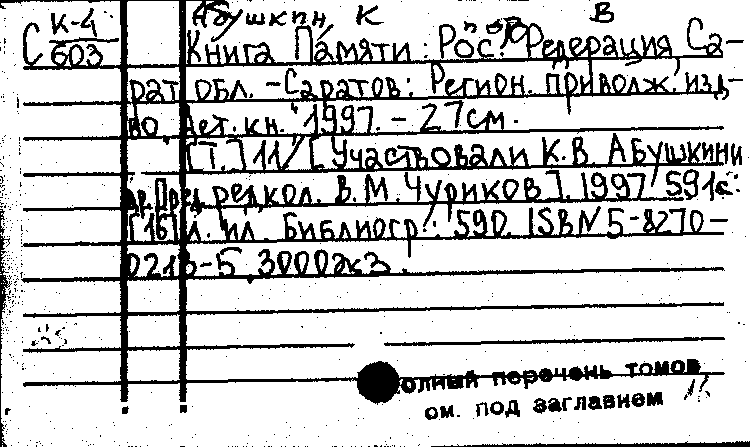 Абушкин, К В
С К-4
603
Книга Памяти: Рос. Федерация, Са-
рат. обл. - Саратов: Регион. приволж. изд-
во "Дет. кн." 1997. - 27см.
[Т.] 11/[Участвовали К.В. Абушкин и
др. Пред. редкол. В.М. Чуриков]. 1997 591с.:
[16] л. ил. Библиогр.: 590. ISBN 5-8270-
0213-5. 3000экз.
полный перечень томов
см. под заглавием